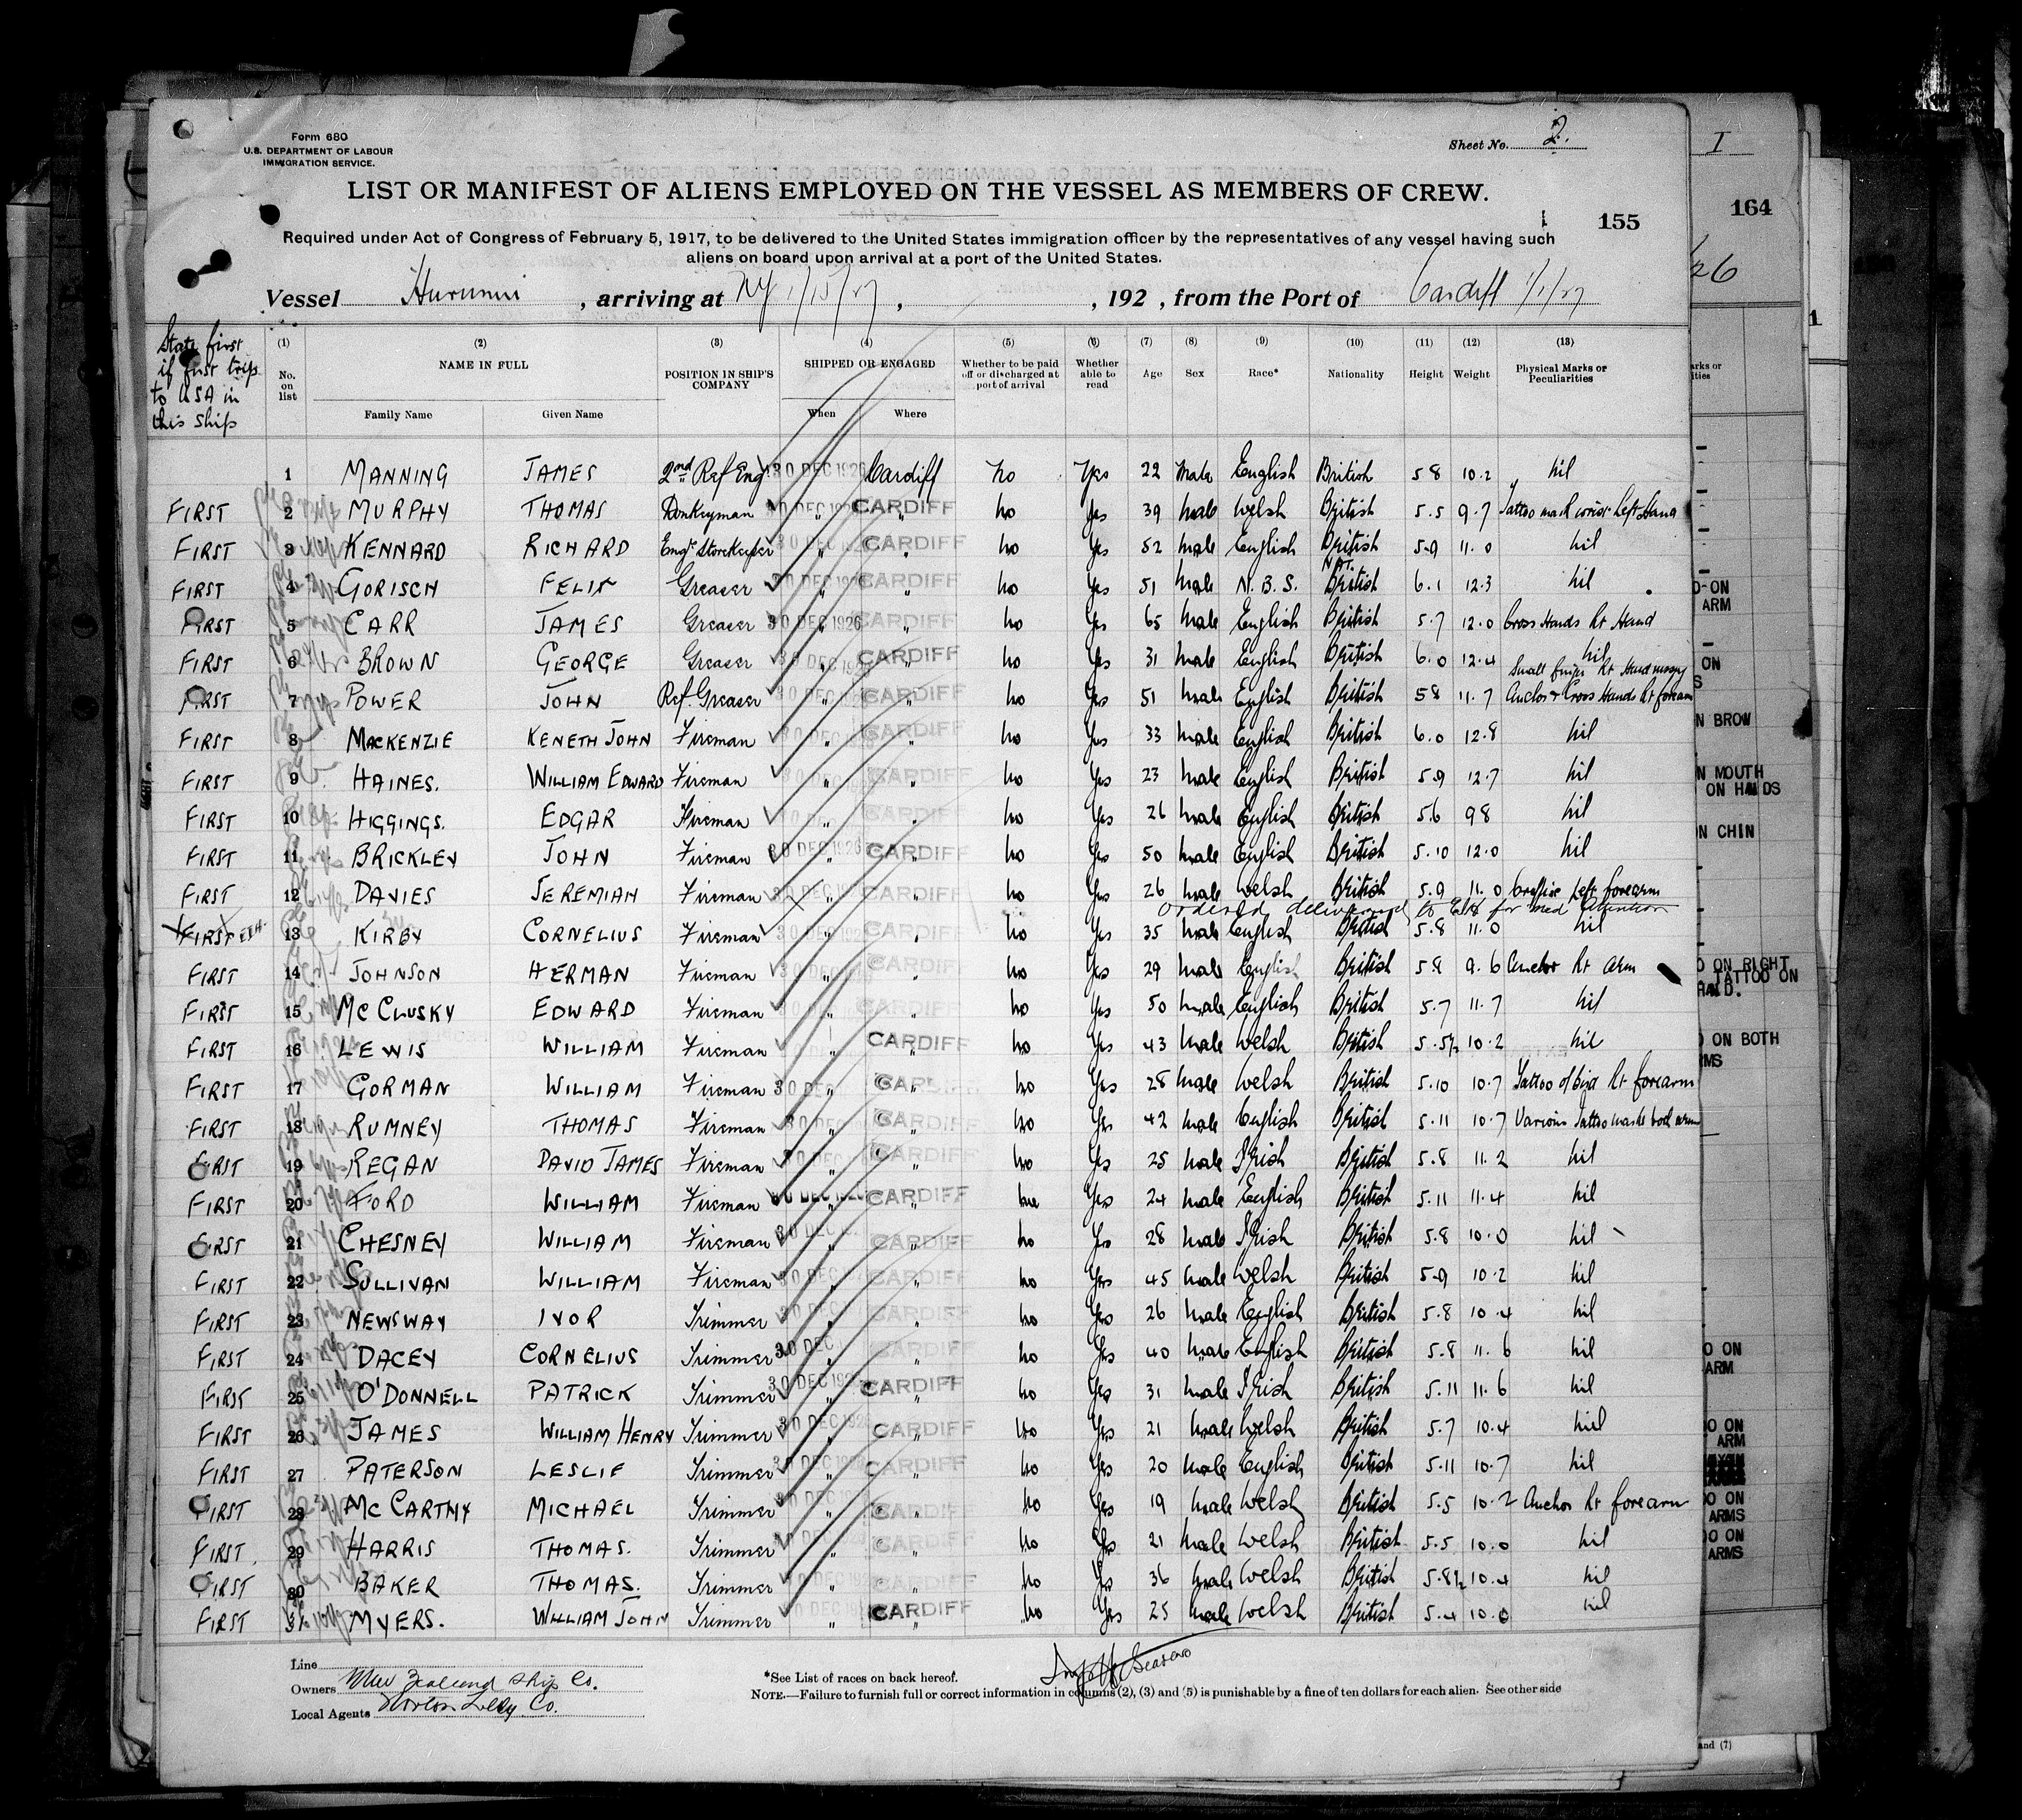 Form 680
U.S. DEPARTMENT OF LABOUR
IMMIGRATION SERVICE.
Sheet No. 2.
I
LIST OR MANIFEST OF ALIENS EMPLOYED ON THE VESSEL AS MEMBERS OF CREW.
155
164
Required under Act of Congress of February 5, 1917, to be delivered to the United States immigration officer by the representatives of any vessel having such
aliens on board upon arrival at a port of the United States.
Vessel Hurunui, arriving at NY 1/15/27, , 192 , from the Port of Cardiff 1/1/27
State first if first trip to USA in this ship
(1) No. on list
(2) NAME IN FULL
Family Name Given Name
(3) POSITION IN SHIP'S COMPANY
(4) SHIPPED OR ENGAGED
When Where
(5) Whether to be paid off or discharged at port of arrival
(6) Whether able to read
(7) Age
(8) Sex
(9) Race*
(10) Nationality
(11) Height
(12) Weight
(13) Physical Marks or Peculiarities
1 MANNING JAMES 2nd Ref Eng 30 DEC 1926 Cardiff No Yes 22 Male English British 5 8 10.2 Nil
FIRST 2 MURPHY THOMAS Donkeyman 30 DEC 1926 " CARDIFF " No Yes 39 Male Welsh British 5.5 9.7 Tattoo mark wrist Left Hand
FIRST 3 KENNARD RICHARD Engr Storekeeper 30 DEC " CARDIFF " No Yes 52 Male English British 5.9 11.0 Nil
FIRST 4 GORISCH FELIX Greaser 30 DEC 1926 " CARDIFF " No Yes 51 Male N.B.S. NAT. British 6.1 12.3 Nil
FIRST 5 CARR JAMES Greaser 30 DEC 1926 " " No Yes 65 Male English British 5.7 12.0 Cross Hands Rt Hand
FIRST 6 BROWN GEORGE Greaser 30 DEC " CARDIFF " No Yes 31 Male English British 6.0 12.4 Nil
Small finger Rt Hand missing
FIRST 7 POWER JOHN Ref. Greaser 30 DEC " CARDIFF " No Yes 51 Male English British 5 8 11.7 Anchor & Cross Hands Rt forearm
FIRST 8 MACKENZIE KENETH JOHN Fireman 30 DEC " CARDIFF " No Yes 33 Male English British 6.0 12.8 Nil
FIRST 9 HAINES. WILLIAM EDWARD Fireman 30 DEC " CARDIFF " No Yes 23 Male English British 5.9 12.7 Nil
FIRST 10 HIGGINGS. EDGAR Fireman " CARDIFF " No Yes 26 Male English British 5.6 9 8 Nil
FIRST 11 BRICKLEY JOHN Fireman 30 DEC 1926 " CARDIFF " No Yes 50 Male English British 5.10 12.0 Nil
FIRST 12 DAVIES JEREMIAH Fireman 30 DEC " CARDIFF " No Yes 26 Male Welsh British 5.9 11.0 Left forearm
ordered delivered to for med attention
FIRST 13 KIRBY CORNELIUS Fireman 30 DEC " " No Yes 35 Male English British 5.8 11.0 Nil
FIRST 14 JOHNSON HERMAN Fireman 30 DEC " CARDIFF " No Yes 29 Male English British 5 8 9.6 Anchor Rt Arm
FIRST 15 MC CLUSKY EDWARD Fireman " CARDIFF " No Yes 50 Male English British 5.7 11.7 Nil
FIRST 16 LEWIS WILLIAM Fireman " CARDIFF " No Yes 43 Male Welsh British 5.5½ 10.2 Nil
FIRST 17 GORMAN WILLIAM Fireman 30 DEC " CARDIFF " No Yes 28 Male Welsh British 5.10 10.7 Tattoo of Bird Rt forearm
FIRST 18 RUMNEY THOMAS Fireman 30 DEC " CARDIFF " No Yes 42 Male English British 5.11 10.7 Various Tattoo marks both arms
FIRST 19 REGAN DAVID JAMES Fireman " CARDIFF " No Yes 25 Male Irish British 5.8 11.2 Nil
FIRST 20 FORD WILLIAM Fireman 30 DEC 1926 " CARDIFF " Yes 24 Male English British 5.11 11.4 Nil
FIRST 21 CHESNEY WILLIAM Fireman 30 DEC " CARDIFF " No Yes 28 Male Irish British 5.8 10.0 Nil
FIRST 22 SULLIVAN WILLIAM Fireman 30 DEC " CARDIFF " No Yes 45 Male Welsh British 5.9 10.2 Nil
FIRST 23 NEWSWAY IVOR Trimmer 30 DEC " CARDIFF " No Yes 26 Male English British 5.8 10.4 Nil
FIRST 24 DACEY CORNELIUS Trimmer 30 DEC " CARDIFF " No Yes 40 Male English British 5.8 11.6 Nil
FIRST 25 O'DONNELL PATRICK Trimmer 30 DEC 1926 " CARDIFF " No Yes 31 Male Irish British 5.11 11.6 Nil
FIRST 26 JAMES WILLIAM HENRY Trimmer 30 DEC 1926 " CARDIFF " No Yes 21 Male Welsh British 5.7 10.4 Nil
FIRST 27 PATERSON LESLIE Trimmer 30 DEC " CARDIFF " No Yes 20 Male English British 5.11 10.7 Nil
FIRST 28 MC CARTHY MICHAEL Trimmer 30 DEC " CARDIFF " No Yes 19 Male Welsh British 5.5 10.2 Anchor Rt forearm
FIRST 29 HARRIS THOMAS. Trimmer " CARDIFF " No Yes 21 Male Welsh British 5.5 10.0 Nil
FIRST 30 BAKER THOMAS. Trimmer 30 DEC " CARDIFF " No Yes 36 Male Welsh British 5.8½ 10.4 Nil
FIRST 31 MYERS. WILLIAM JOHN Trimmer 30 DEC " CARDIFF " No Yes 25 Male Welsh British 5.4 10.0 Nil
Line
Owners New Zealand Ship Co.
Local Agents Norton Lilly Co.
*See List of races on back hereof.
NOTE.—Failure to furnish full or correct information in columns (2), (3) and (5) is punishable by a fine of ten dollars for each alien. See other side
26
1
ON
ARM
ON
N BROW
N MOUTH
ON HANDS
ON CHIN
ON RIGHT
TATTOO ON
ON BOTH
ARMS
ON
ARM
ON
ARM
ON
ARMS
ON
ARMS
and (7)